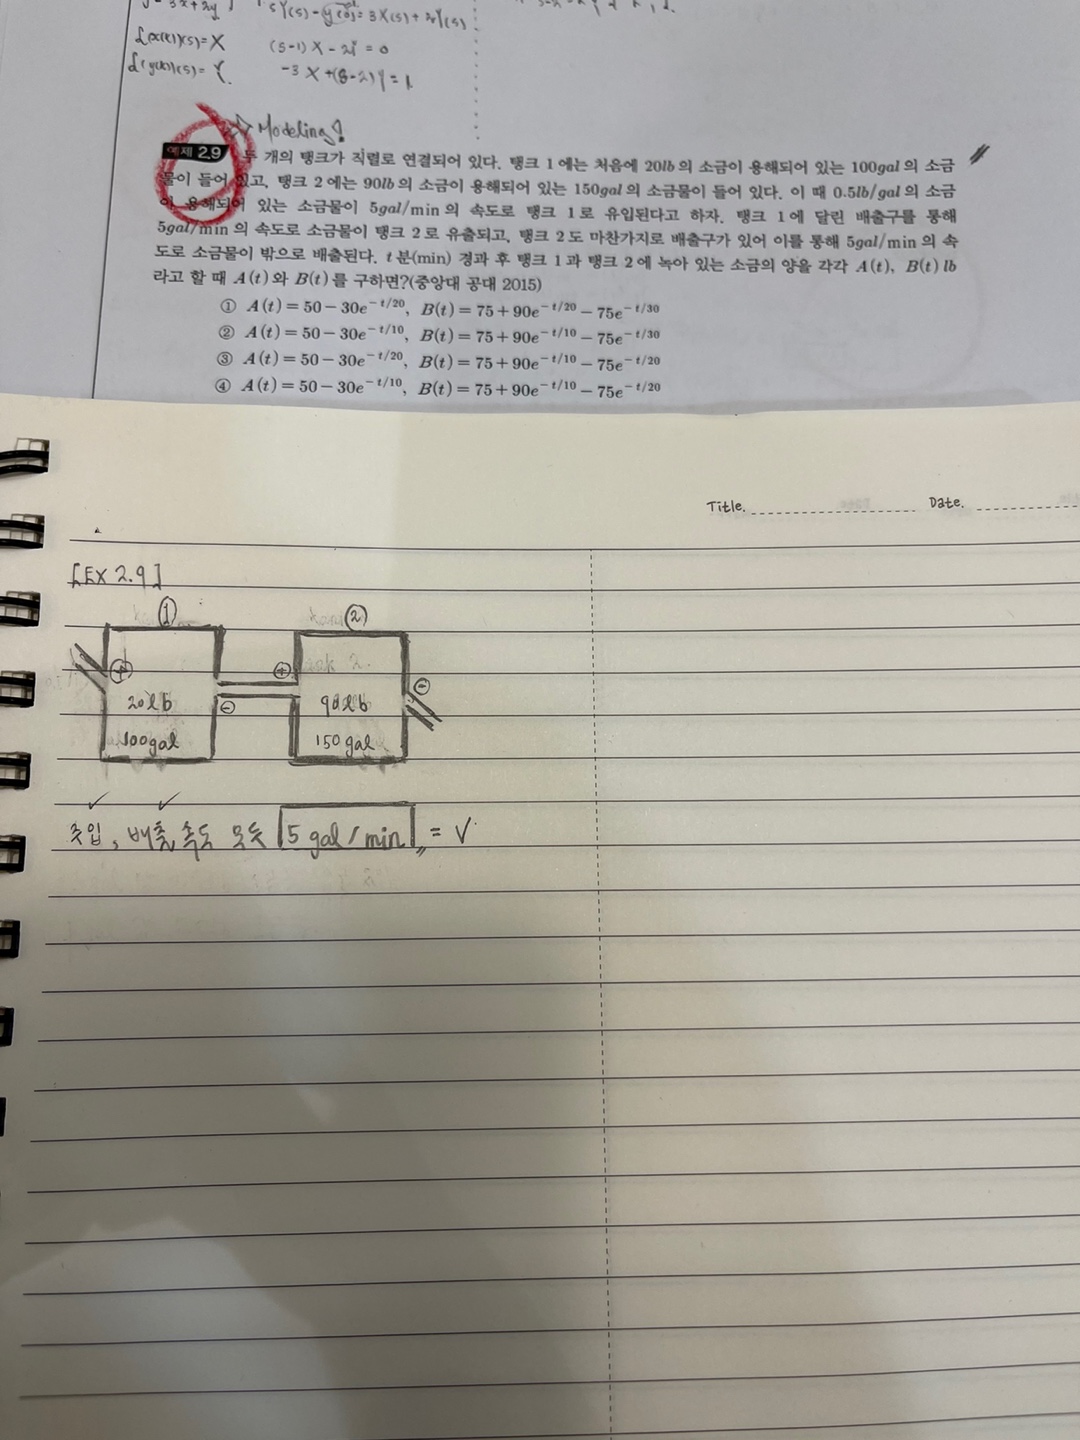 y = 3x+2y
sY(s) - y(0) = 3X(s) + 2Y(s)
£(x(t))(s) = X (s-1)X - 2Y = 0
£(y(t))(s) = Y. -3X + (s-2)Y = 1.
☆ Modeling!
예제 2.9 두 개의 탱크가 직렬로 연결되어 있다. 탱크 1에는 처음에 20lb의 소금이 용해되어 있는 100gal의 소금
물이 들어 있고, 탱크 2에는 90lb의 소금이 용해되어 있는 150gal의 소금물이 들어 있다. 이 때 0.5lb/gal의 소금
이 용해되어 있는 소금물이 5gal/min의 속도로 탱크 1로 유입된다고 하자. 탱크 1에 달린 배출구를 통해
5gal/min의 속도로 소금물이 탱크 2로 유출되고, 탱크 2도 마찬가지로 배출구가 있어 이를 통해 5gal/min의 속
도로 소금물이 밖으로 배출된다. t분(min) 경과 후 탱크 1과 탱크 2에 녹아 있는 소금의 양을 각각 A(t), B(t) lb
라고 할 때 A(t)와 B(t)를 구하면?(중앙대 공대 2015)
① A(t) = 50 - 30e^{-t/20}, B(t) = 75 + 90e^{-t/20} - 75e^{-t/30}
② A(t) = 50 - 30e^{-t/10}, B(t) = 75 + 90e^{-t/10} - 75e^{-t/30}
③ A(t) = 50 - 30e^{-t/20}, B(t) = 75 + 90e^{-t/10} - 75e^{-t/20}
④ A(t) = 50 - 30e^{-t/10}, B(t) = 75 + 90e^{-t/10} - 75e^{-t/20}
Title. Date.
[EX 2.9]
① ②
⊕ ⊕ ⊖
20lb ⊖ 90lb
100gal 150gal
주입, 배출 속도 모두 5 gal/min = V